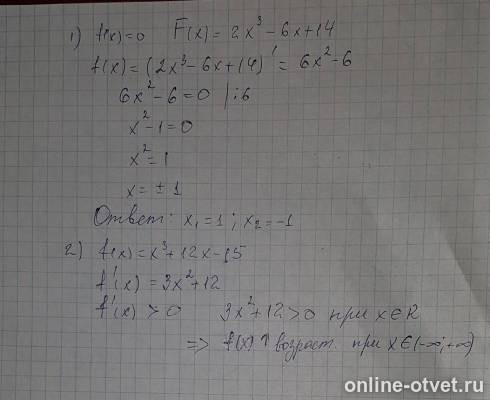 1) f(x)=0 F(x)=2x³-6x+14
f(x)=(2x³-6x+14)'=6x²-6
6x²-6=0 |:6
x²-1=0
x²=1
x=±1
Ответ: x₁=1; x₂=-1
2) f(x)=x³+12x-15
f'(x)=3x²+12
f'(x)>0 3x²+12>0 при x∈R
=> f(x)↑возраст. при x∈(-∞;+∞)
online-otvet.ru